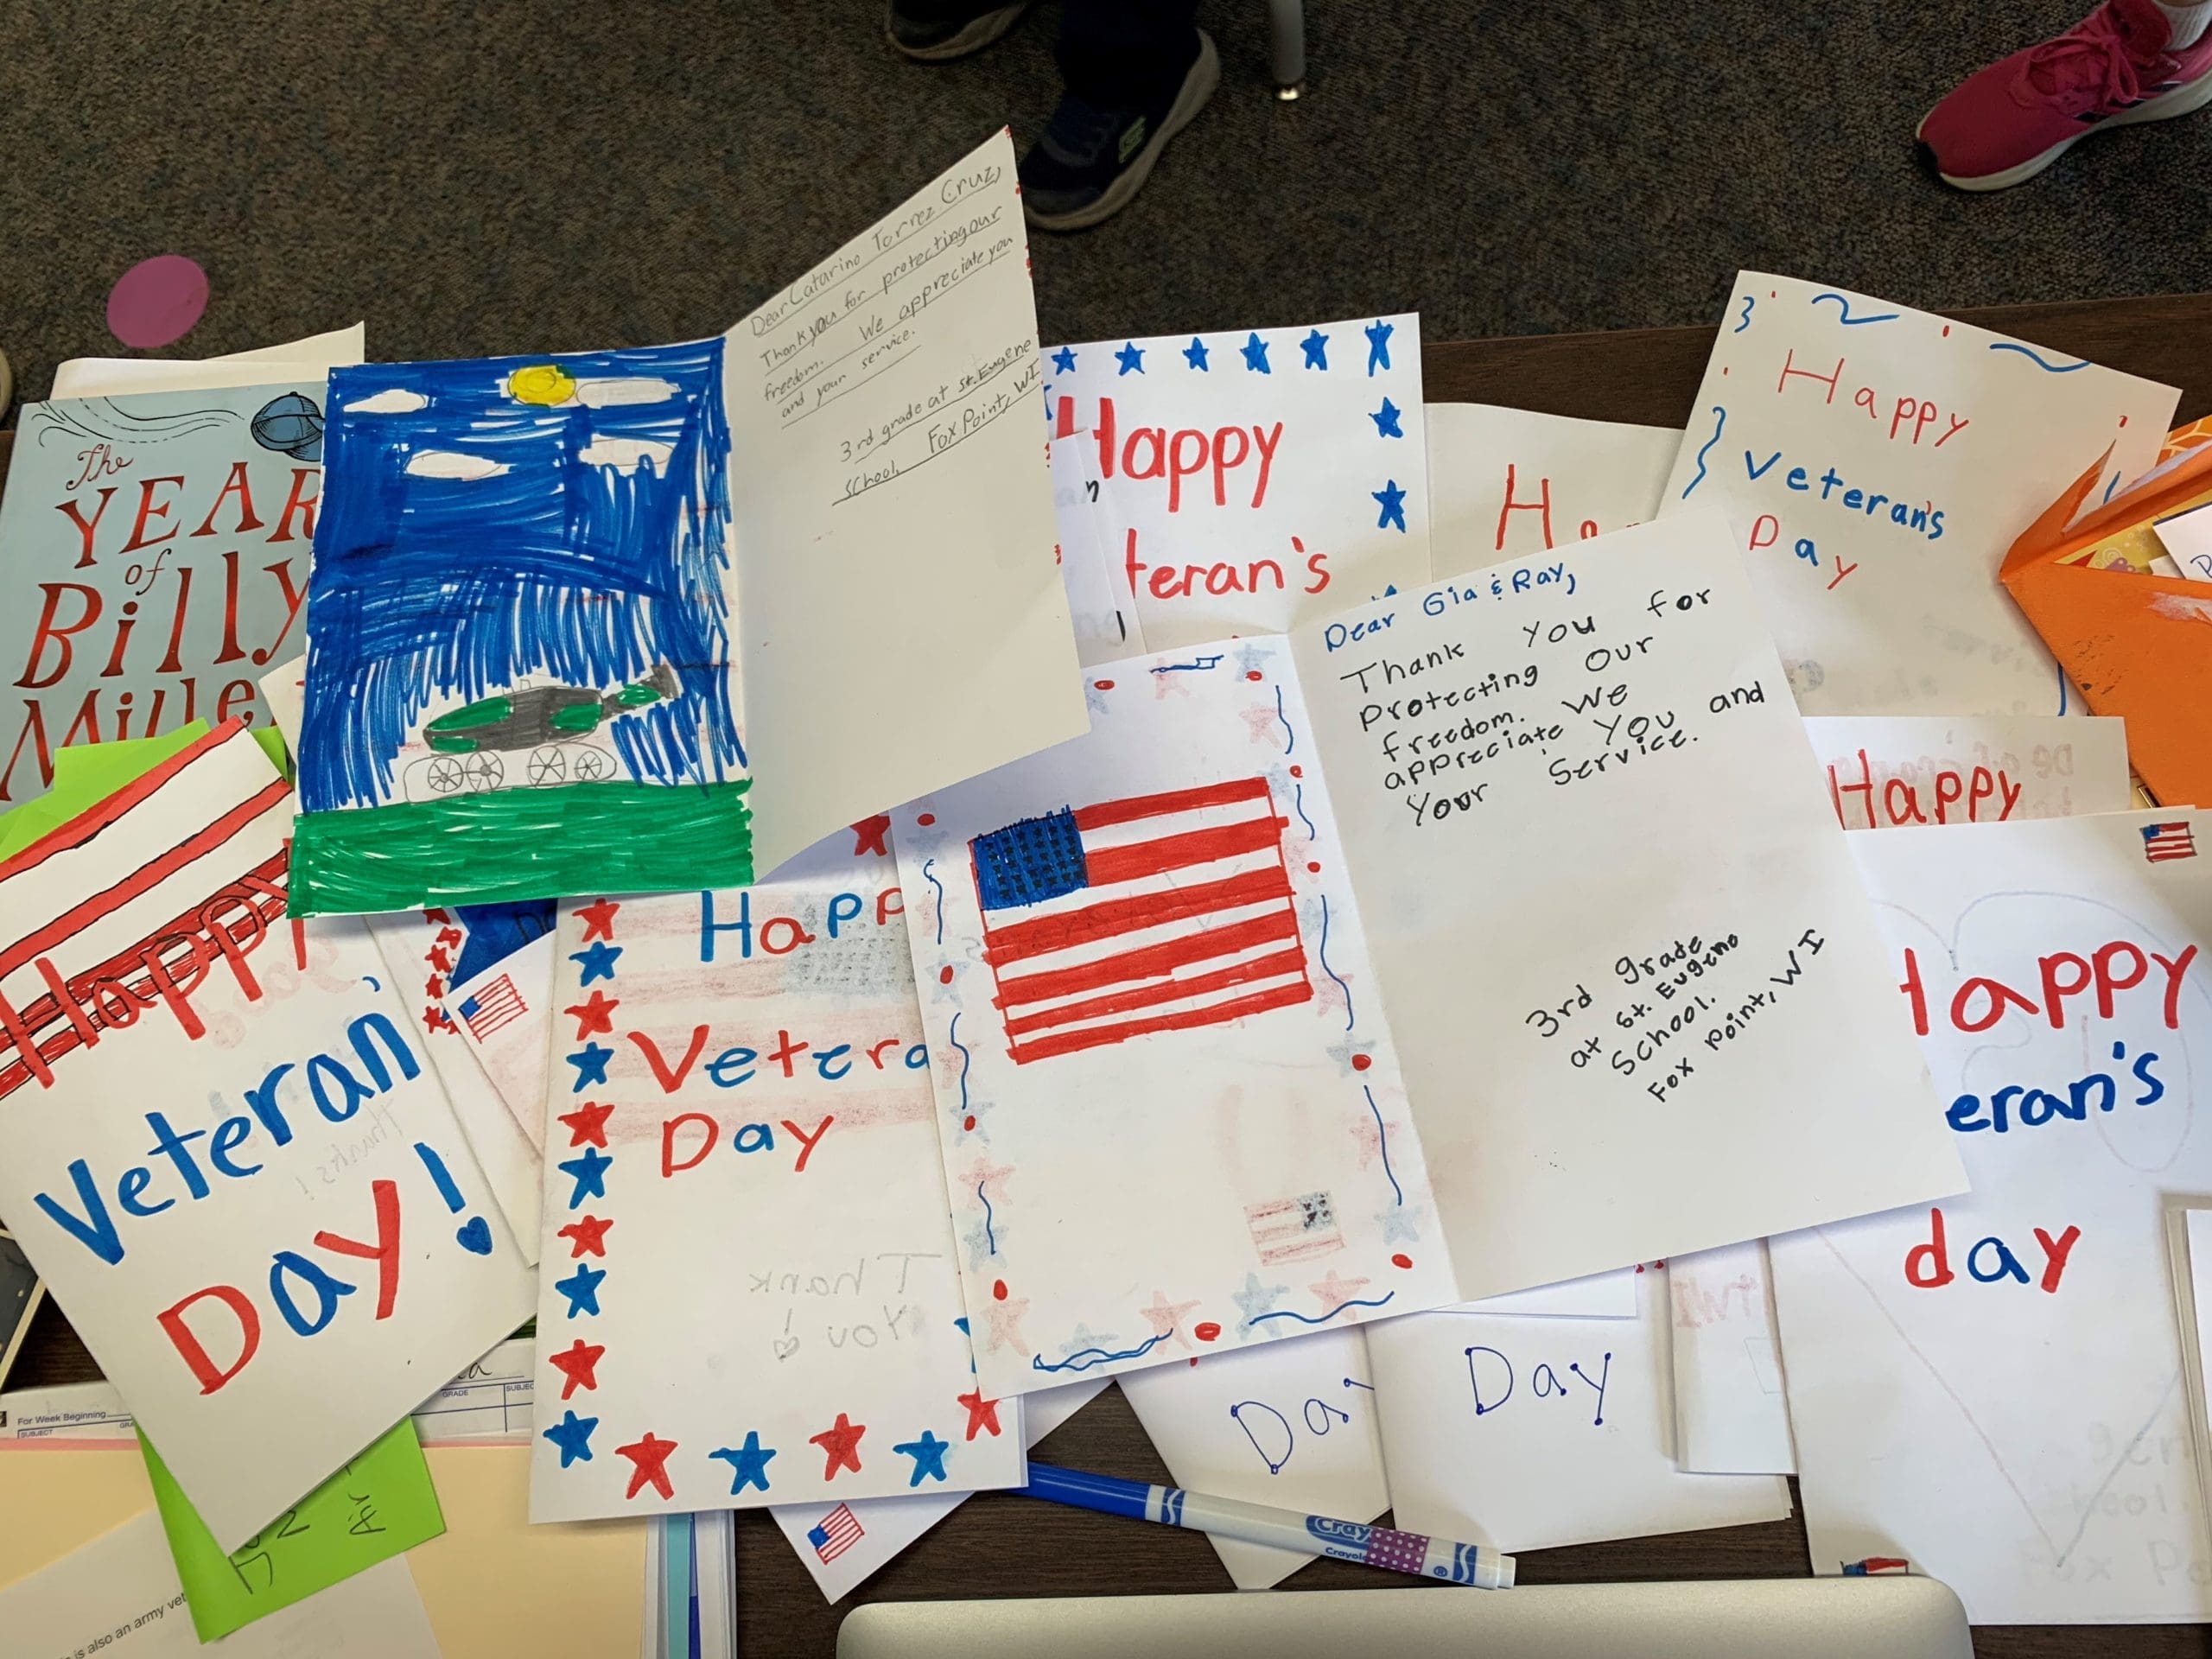 Dear Catarino Torrez Cruz,
Thank you for protecting our
freedom. We appreciate you
and your service.
3rd grade at St. Eugene
School, Fox Point, WI
The
YEAR
of
Billy
Mille
Happy
teran's
Happy
Veteran's
Day
Dear Gia & Ray,
Thank you for
protecting our
freedom. We
appreciate you and
your service.
3rd grade
at St. Eugene
School.
Fox Point, WI
Happy
Happy
eran's
day
Happy
Veteran'
Day!
Thanks!
Happ
Vetera
Day
Thank
You
Day
For Week Beginning
SUBJECT
GRADE
SUBJEC
Air
is also an army vet
Cray
Crayola